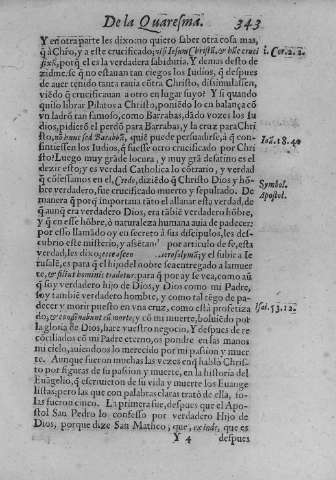 De la Quaresma. 343
Y en otra parte les dixo: no quiero saber otra cosa mas,
q̃ à Chro, y a este crucificado; nisi Iesum Christũ, & hũc cruci
i. Cor. 2. 2.
fixũ, porq̃ el es la verdadera sabiduria. Y demas desto de
zidme. sè q̃ no estauan tan ciegos los Iudios, q̃ despues
de auer tenido tanta rauia cõtra Christo, dissimulassen,
viẽdo q̃ crucificauan a otro en lugar suyo? Y si quando
quiso librar Pilatos a Christo, poniẽdo lo en balança cõ
vn ladrõ tan famoso, como Barrabas, dãdo vozes los Iu
dios, pidierõ el perdõ para Barrabas, y la cruz para Chri
sto, nõ hunc sed Barabã, quiẽ puede persuadirse, q̃ con-
Ioã. 18. 40
sintiessen los Iudios, q̃ fuesse otro crucificado por Chri
sto? Luego muy grãde locura, y muy grã desatino es el
dezir esto; y es verdad Catholica lo cõtrario, y verdad
q̃ cõfessamos en el, Credo, diziẽdo q̃ Christo Dios y hõb-
re verdadero, fue crucificado muerto y sepultado. De
Symbol.
manera q̃ por q̃ importaua tãto el allanar esta verdad, de
Apostol.
q̃ aunq̃ era verdadero Dios, era tãbiẽ verdadero hõbre,
y q̃ en esse hõbre, ò naturaleza humana auia de padecer;
por esso llamãdo oy en secreto à sus discipulos, les des-
cubrio este misterio, y por articulo de fe, esta
verdad, les dixo, y el subir a Ie
rusalẽ, es para q̃ el hijo del nobre sea entregado a la muer
te, & filius hominis tradetur para q̃ por ay se vea, como aũ
q̃ soy verdadero hijo de Dios, y Dios como mi Padre,
soy tambiẽ verdadero hombre, y como tal tẽgo de pa-
decer y morir puesto en vna cruz, como està profetiza
Isai. 53. 12.
do, & consummabunt cõ muerte, y cõ mi muerte, boluiẽdo por
la gloria de Dios, hare vuestro negocio. Y despues de re
cõciliados cõ mi Padre eterno, os pondre en las manos
mi cielo, auiendoos lo merecido por mi passion y muer
te. Aunque fueron muchas las vezes en q̃ hablò Chri-
sto por figuras de su passion y muerte, en la historia del
Euãgelio, q̃ escriuieron de su vida y muerte los Euange
listas; pero las que con palabras claras tratò de ella, so-
las fueron cinco. La primera fue, despues que el Apo-
stol San Pedro lo confesso por verdadero Hijo de
Dios, porque dize San Matheo, que, exinde, que es
Y 4 despues